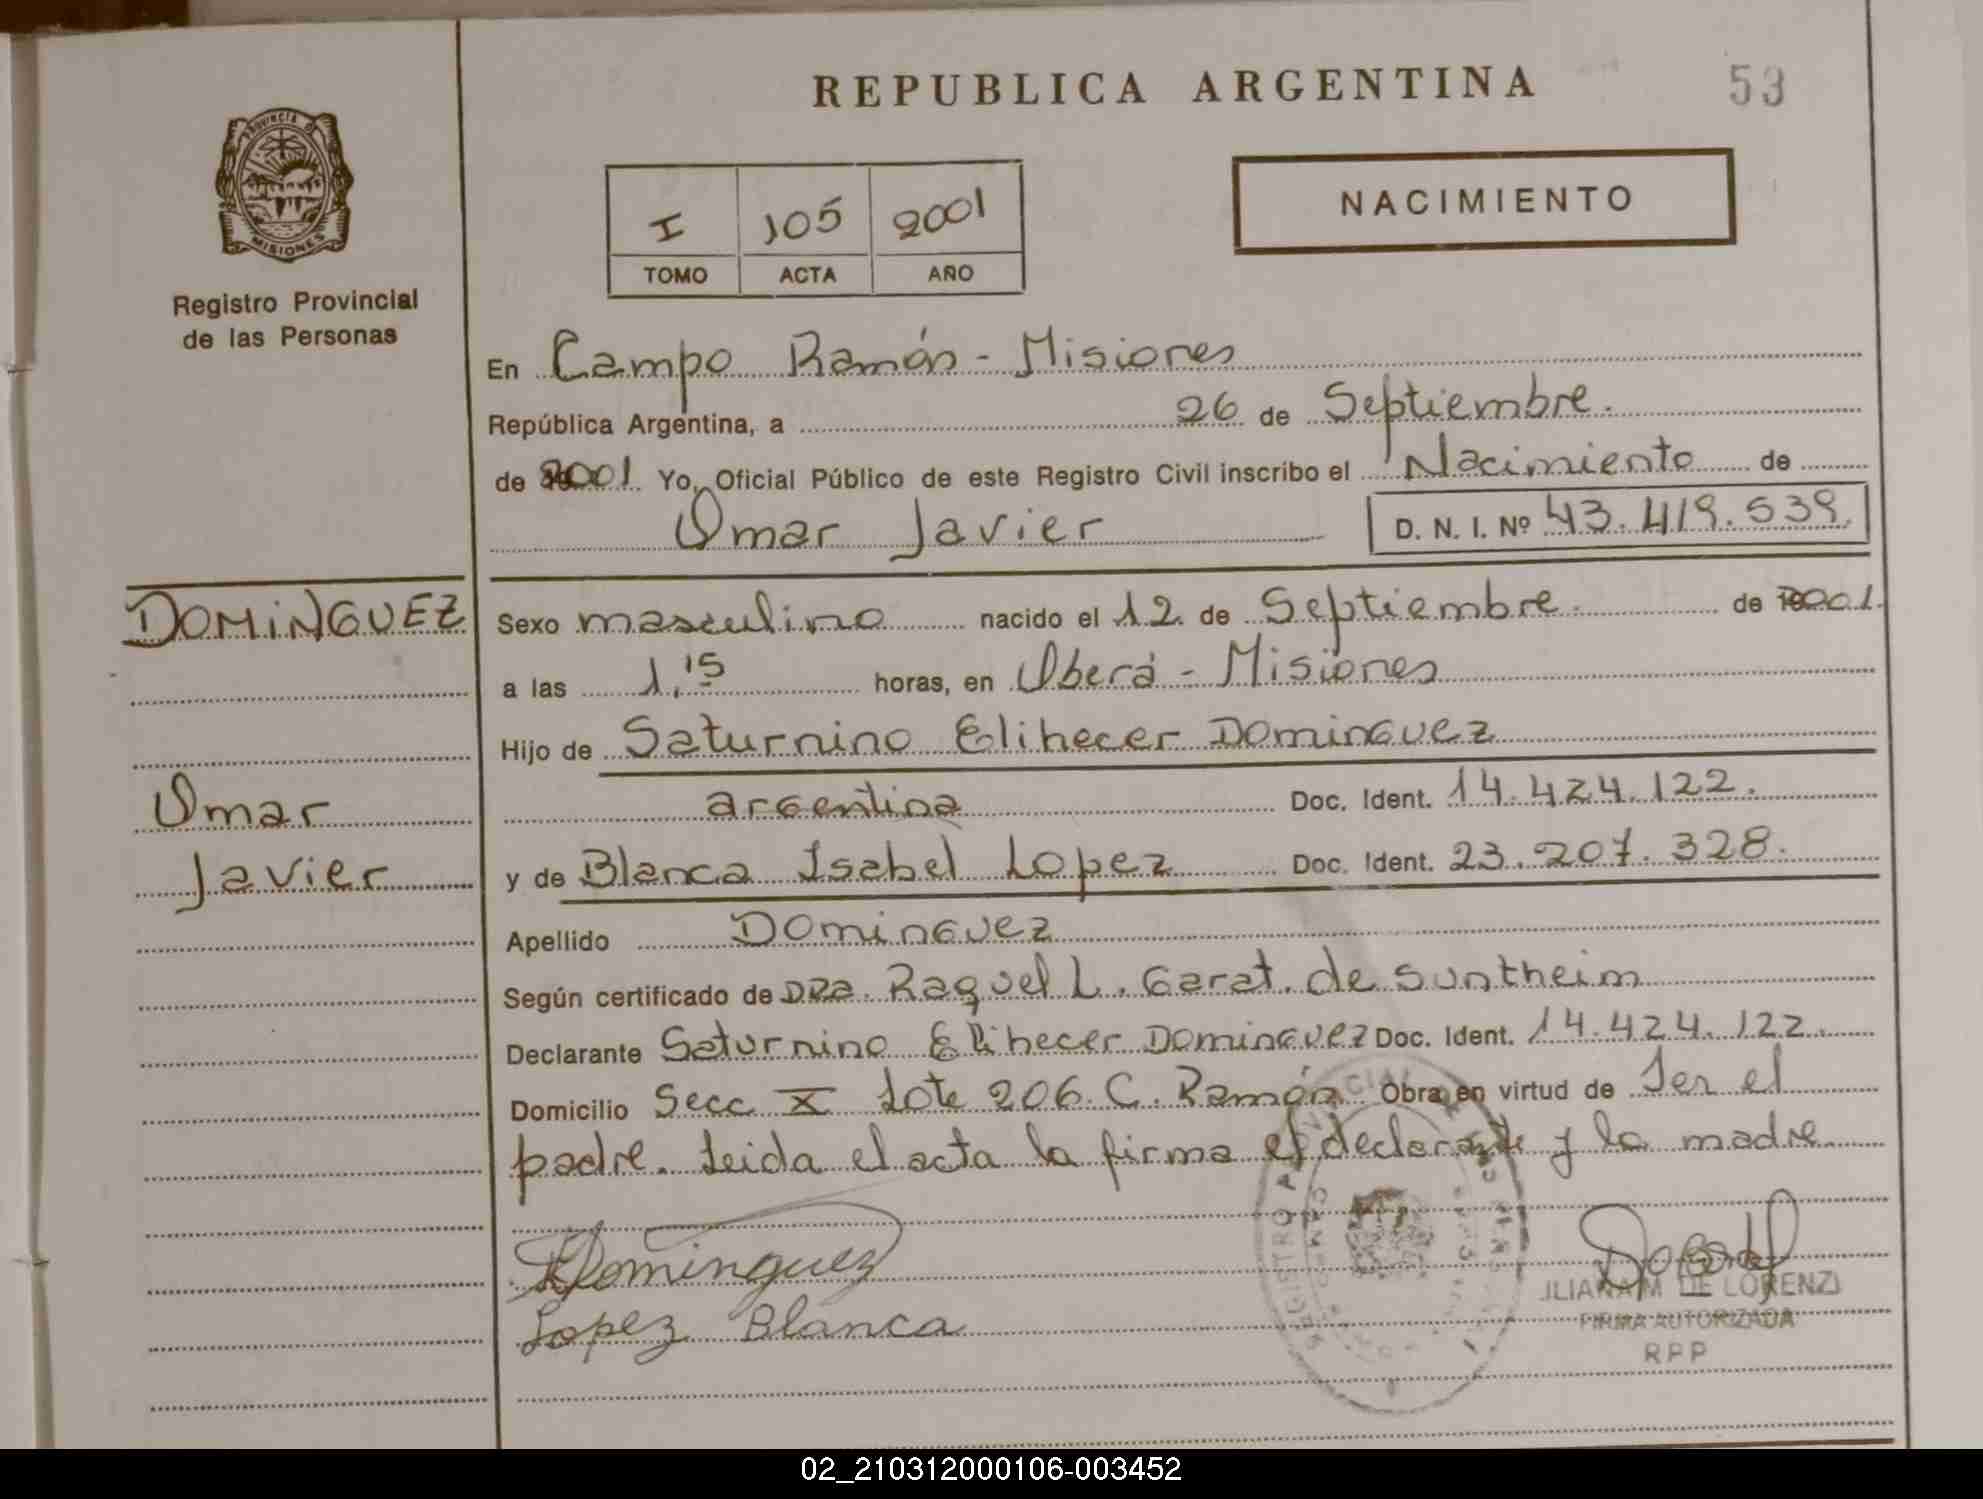 REPUBLICA ARGENTINA
53
PROVINCIA DE
MISIONES
Registro Provincial
de las Personas
I 105 2001
TOMO ACTA AÑO
NACIMIENTO
En Campo Ramón - Misiones
República Argentina, a 26 de Septiembre.
de 2001 Yo, Oficial Público de este Registro Civil inscribo el Nacimiento de
Omar Javier D. N. I. Nº 43.419.539.
DOMINGUEZ
Omar
Javier
Sexo masculino nacido el 12 de Septiembre. de 2001.
a las 1,15 horas, en Oberá - Misiones
Hijo de Saturnino Elihecer Dominguez
argentina Doc. Ident. 14.424.122.
y de Blanca Isabel Lopez Doc. Ident. 23.207.328.
Apellido Dominguez
Según certificado de DRa. Raquel L. Garat. de Suntheim
Declarante Saturnino Elihecer Dominguez Doc. Ident. 14.424.122.
Domicilio Secc X Lote 206. C. Ramón Obra en virtud de Ser el
padre. Leida el acta la firma el declarante y la madre
Dominguez
Lopez Blanca
DE LORENZI
FIRMA AUTORIZADA
RPP
02_210312000106-003452